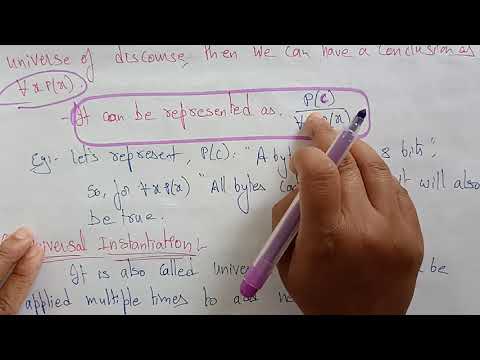 universe of discourse, then we can have a conclusion as
∀xP(x).
- It can be represented as, P(c)
∀x P(x)
Eg:- Let's represent, P(c): "A byt s bits",
So, for ∀x P(x) "All bytes co it will also
be true.
Universal Instantiation:-
It is also called unive be
applied multiple times to ad ne